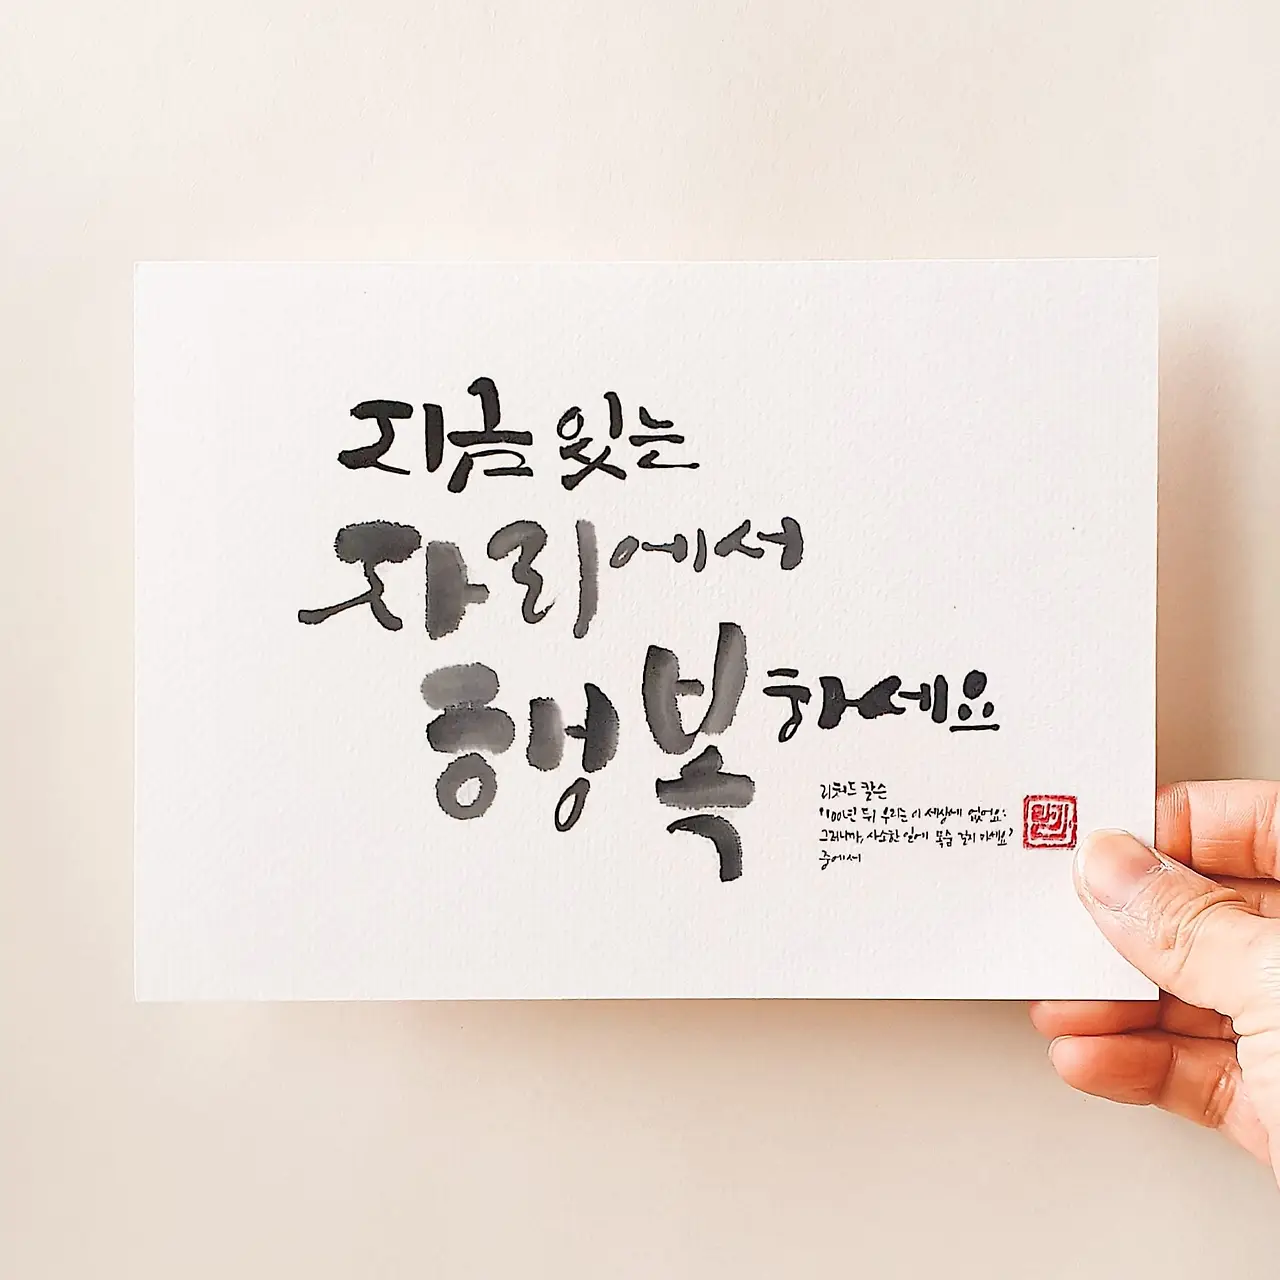 지금 있는
자리에서
행복하세요
리처드 칼슨
"100년 뒤 우리는 이 세상에 없어요:
그러니까, 사소한 일에 목숨 걸지 마세요"
중에서